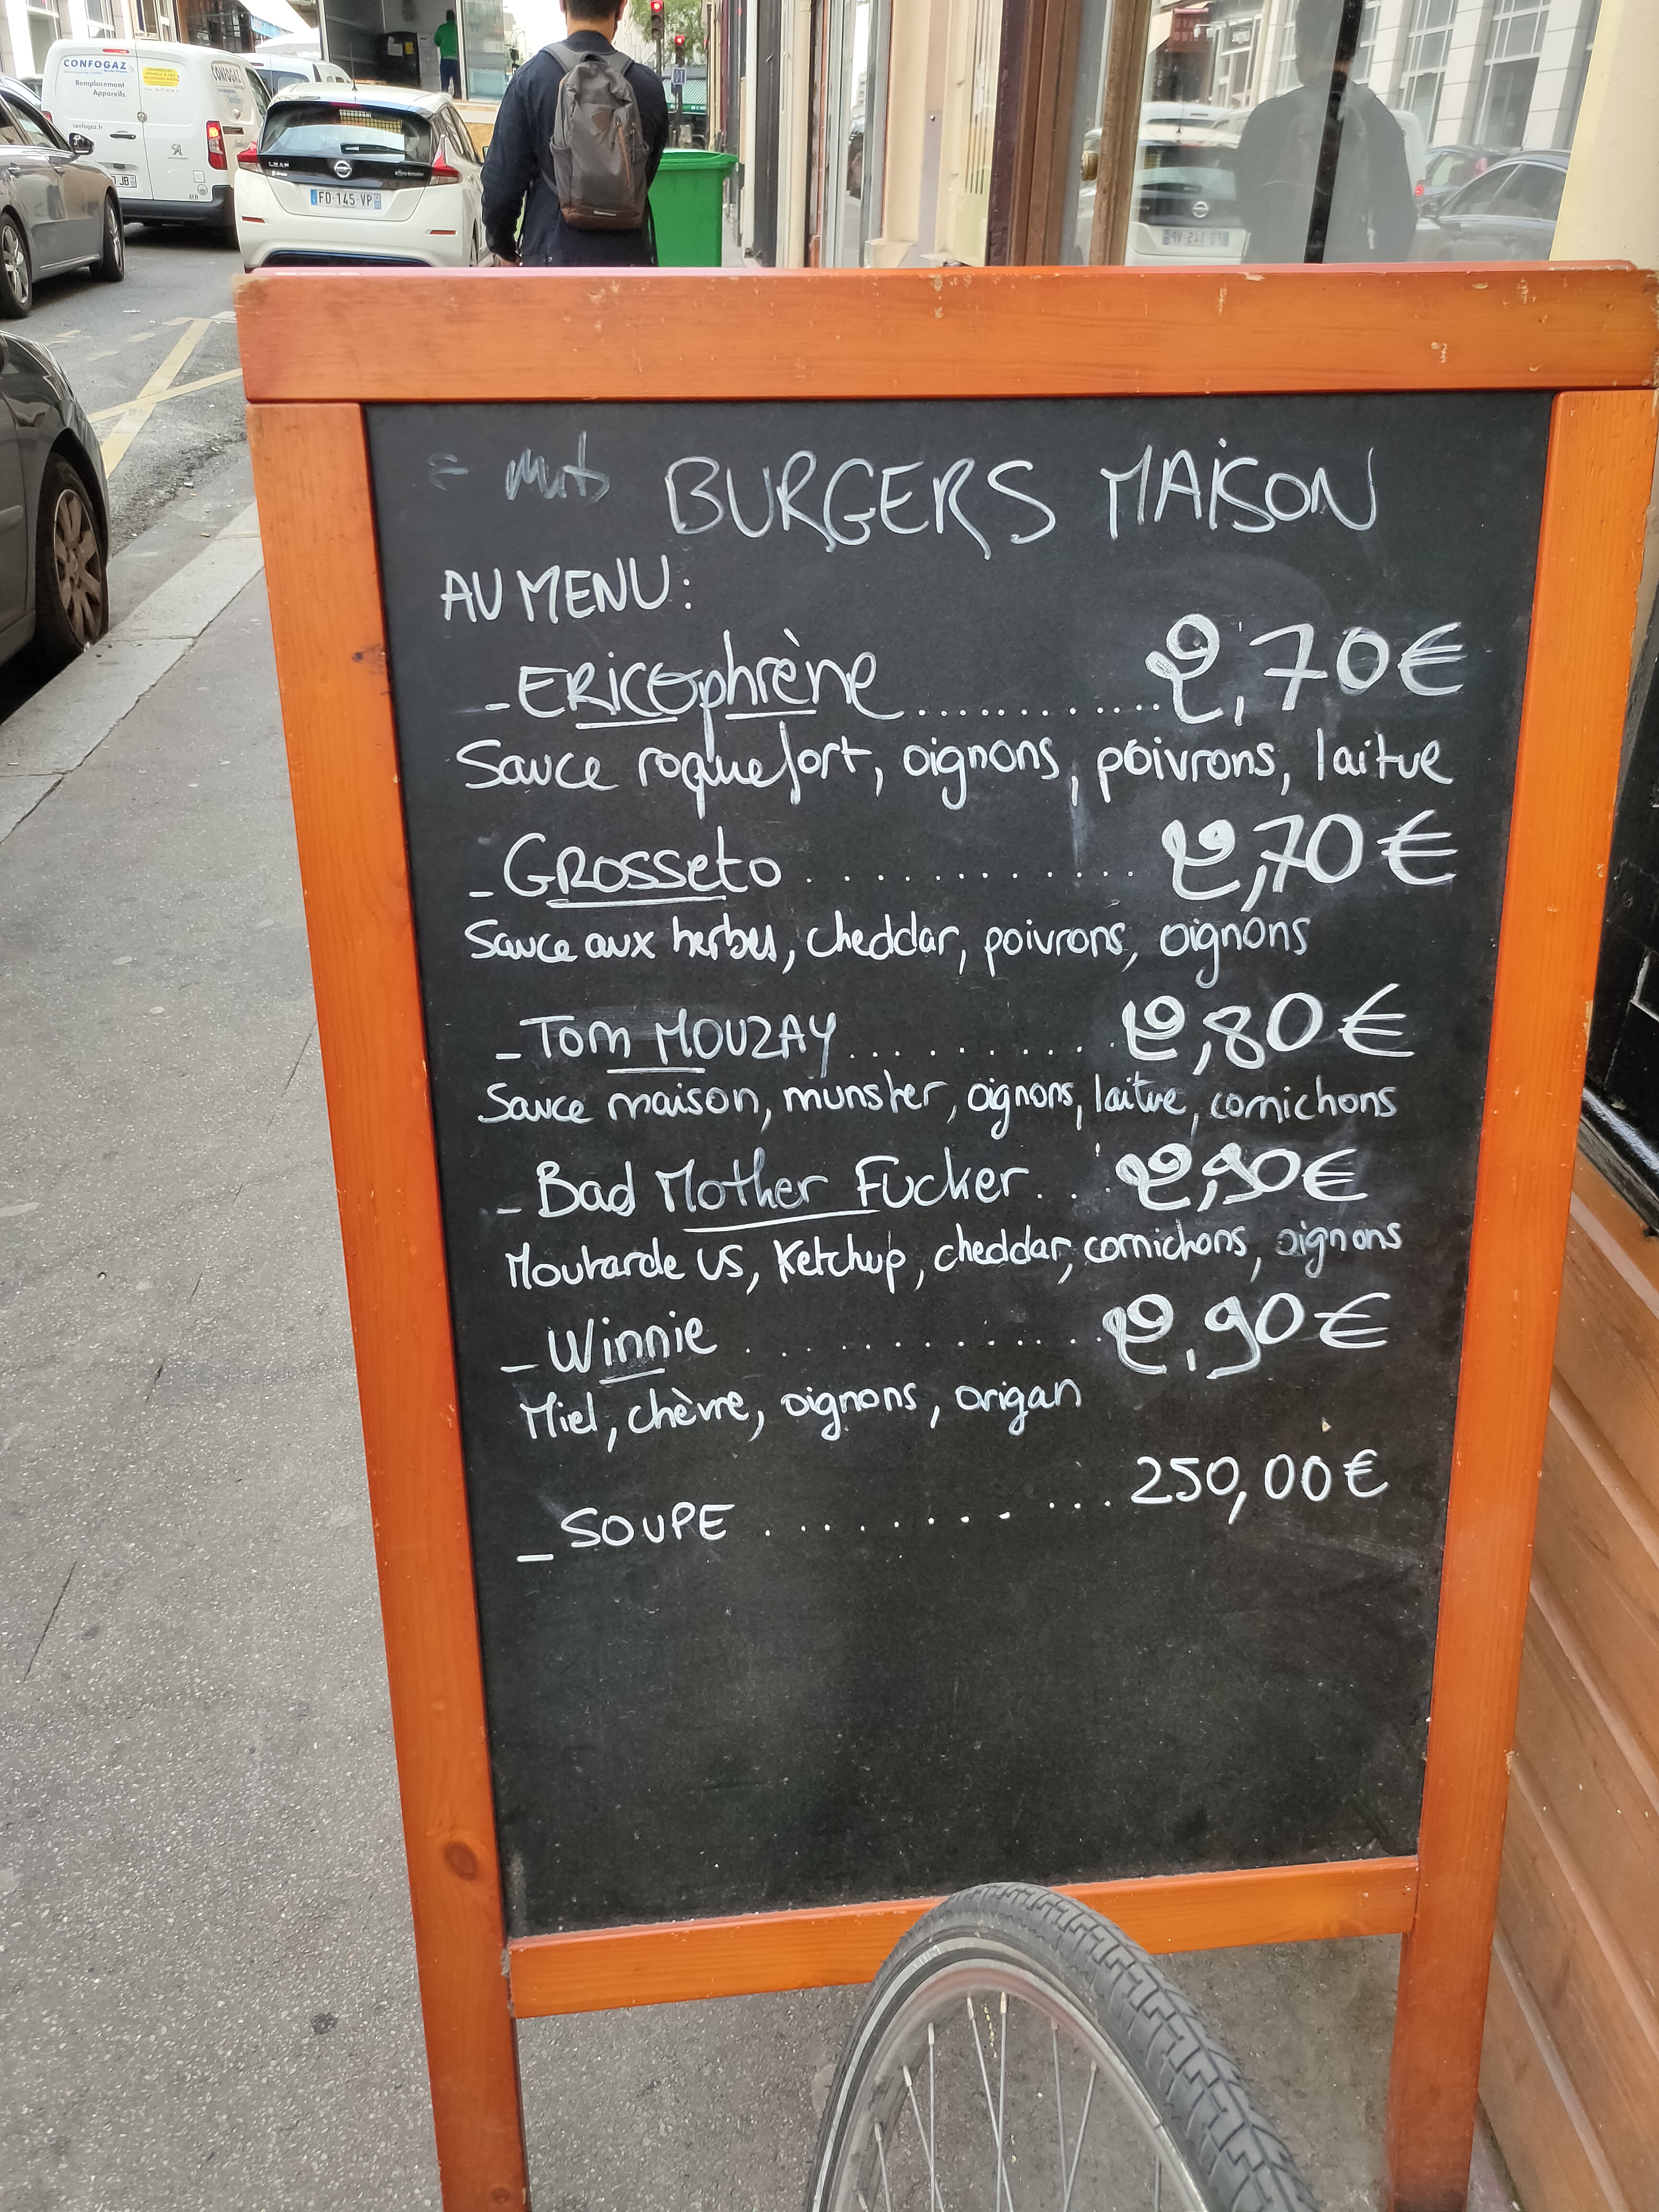 CONFOGAZ
Remplacement
Appareils
confogaz.fr
CONFOGAZ
LEAF
FD-145-VP
BURGERS MAISON
AU MENU:
_ ERICOphrène ............ 2,70€
Sauce roquefort, oignons, poivrons, laitue
_ GROSSETO ............. 2,70€
Sauce aux herbes, cheddar, poivrons, oignons
_ TOM MOUZAY .......... 2,80€
Sauce maison, munster, oignons, laitue, cornichons
_ Bad Mother Fucker ... 2,90€
Moutarde US, Ketchup, cheddar, cornichons, oignons
_ Winnie ............. 2,90€
Miel, chèvre, oignons, origan
_ SOUPE ............ 250,00€